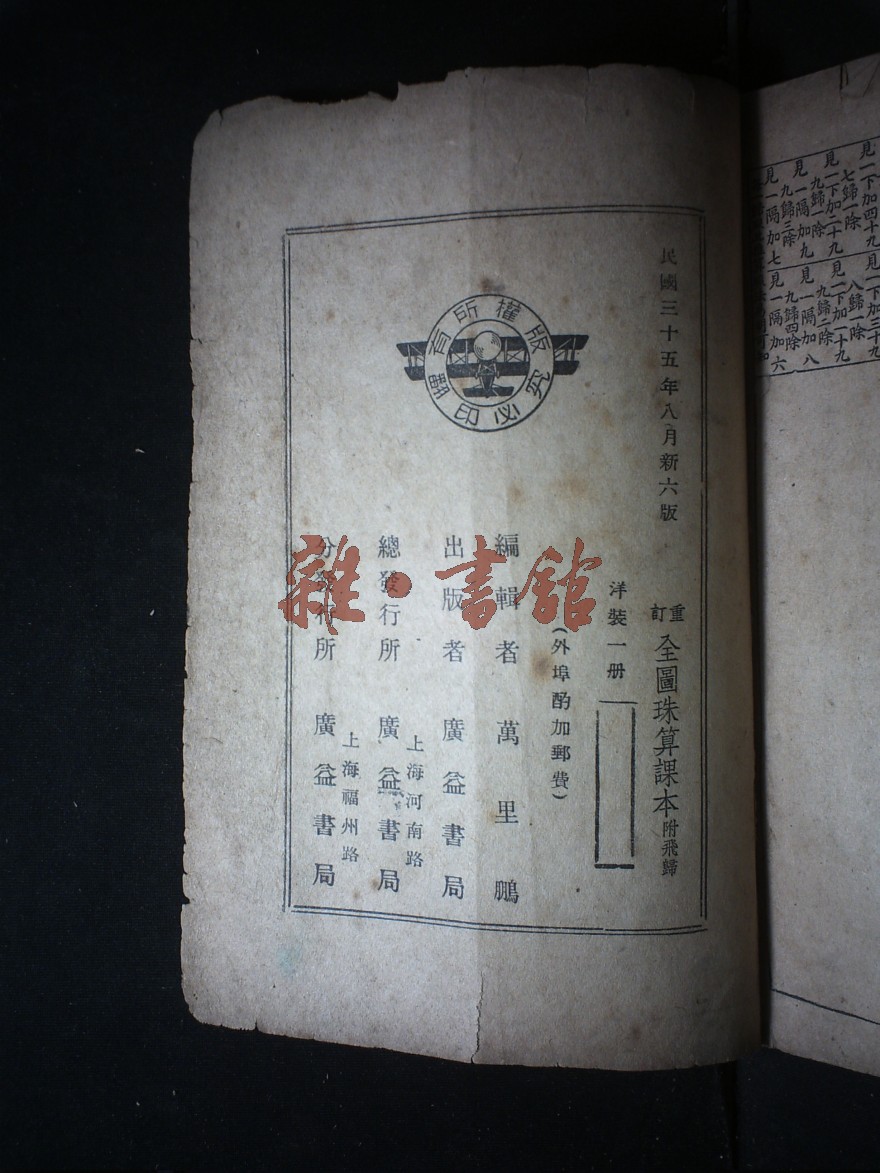 民國三十五年八月新六版
重訂 全圖珠算課本 附飛歸
洋裝一册
(外埠酌加郵費)
編輯者 萬里鵬
出版者 廣益書局
上海河南路
總發行所 廣益書局
上海福州路
分發行所 廣益書局
版權所有
翻印必究
雜·書館
見一下加三十九
八歸一除
見一下加二十九
九歸二除
見一隔加八
九歸四除
見一隔加六
見一下加四十九
七歸一除
見一下加二十九
九歸一除
見一隔加九
九歸三除
見一隔加七